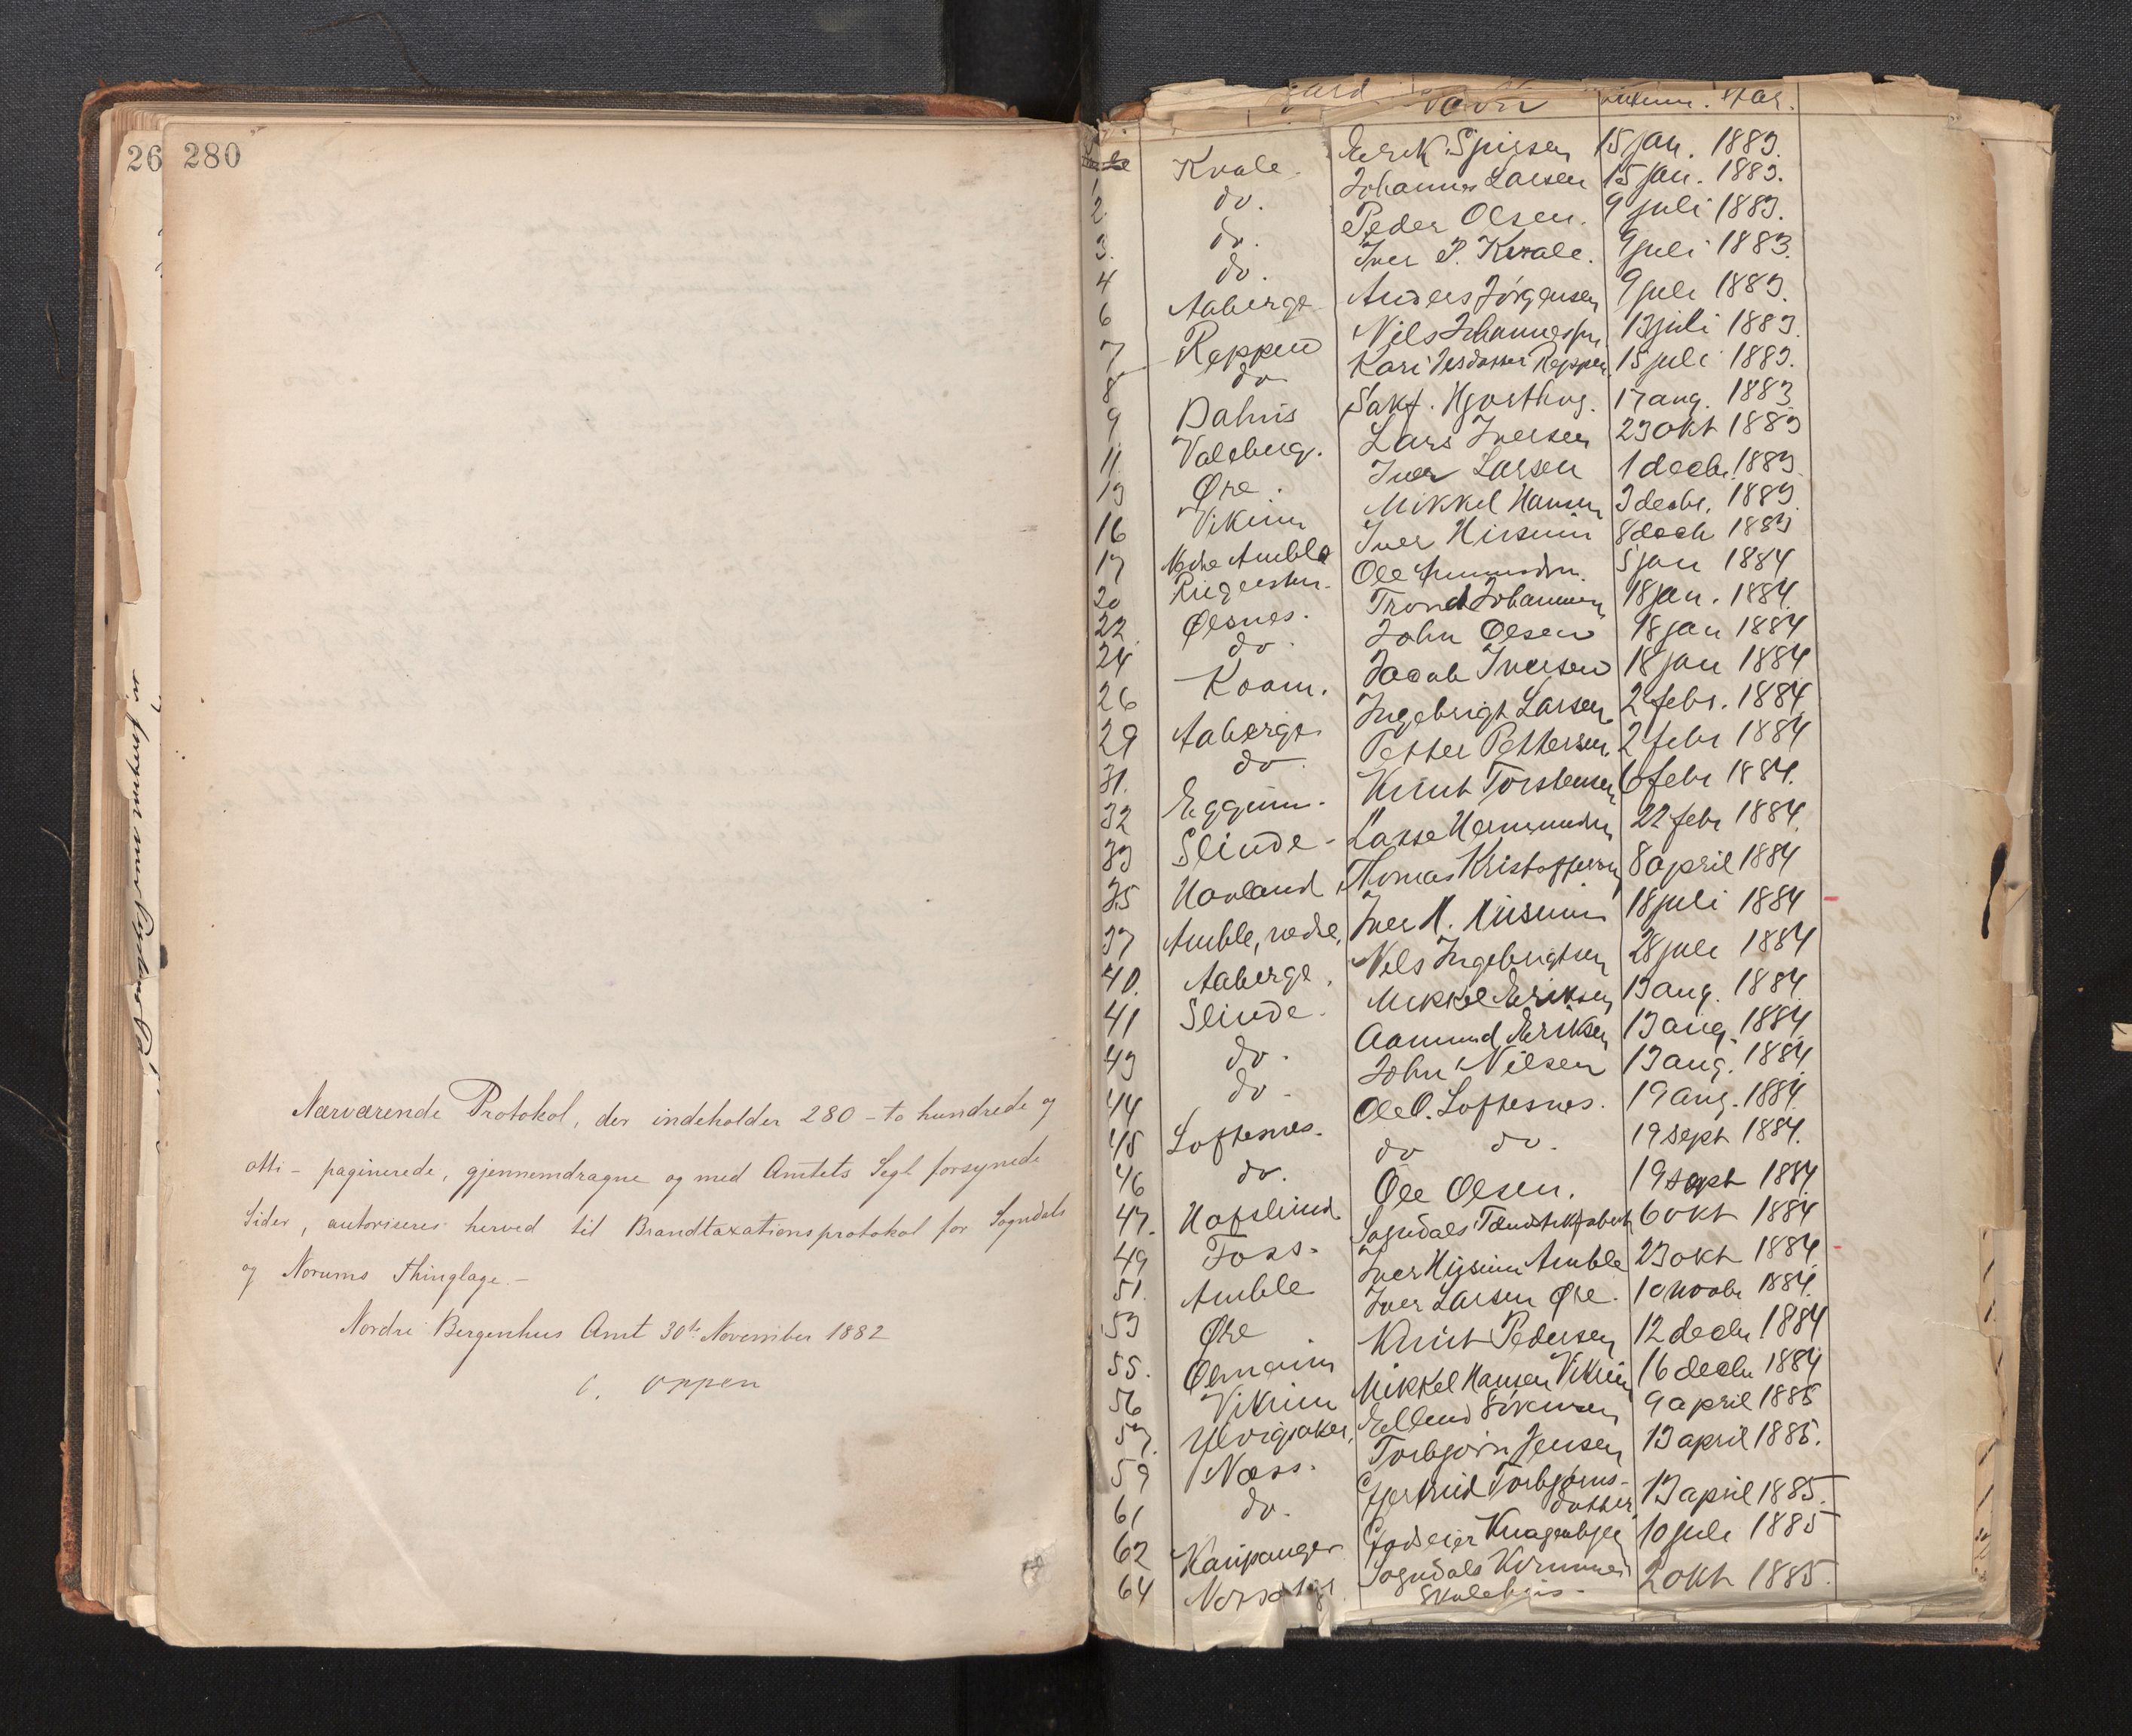 26 280
Nærværende Protokol, der indeholder 280 – to hundrede og
otti – paginerede, gjennemdragne og med Amtets Segl forsynede
Sider, autoriseres herved til Brandtaxationsprotokol for Sogndals
og Norums Thinglage. –
Nordre Bergenhus Amt 30te November 1882
C. Oppen
Gard Navn
1 Kvale. Erik Spirsen 15 jan. 1883.
2. do. Johannes Larsen 15 jan. 1883.
3. do. Peder Olsen. 9 juli 1883.
4 do. Iver P. Kvale. 9 juli 1883.
6 Aaberge Anders Jørgensen 9 juli 1883.
7 Reppen Nils Johannessn 13 juli 1883.
8 do Kari Reppen 15 juli 1883.
9 Dahris Sakf. 17 aug. 1883
11. Valeberg. Lars Iversen 23 okt 1883
13 Øre. Iver Larsen 1 decbr. 1883
16 Vikum Mikkel Hansen 3 decbr. 1883
17 Nedre Amble Iver Husum 8 decb 1883
20 Ole 5 jan 1884
22. Ølsnes. Trond Johannesen 18 jan. 1884.
24 do. John Olsen 18 jan 1884
26 Kaam. Jacob Iversen 18 jan 1884
29 Aaberge Ingebrigt Larsen 2 febr. 1884
31. do. Petter Pettersen. 2 febr 1884
32 Eggum. Knut Torstensen 6 febr 1884.
33 Slinde – Lasse Hermundsn 22 febr 1884.
35 Havland Thomas Kristoffersen 8 april 1884
37 Amble, nedre. Iver H. Husum 18 juli 1884
40. Aaberge. Nils Ingebrigtsen 28 juli 1884
41 Slinde. Mikkel Eriksen 13 aug. 1884
43 do. Aamund Eriksen 13 aug. 1884
44 do. John Nilsen 13 aug. 1884
45 Loftesnes. Ole O. Loftesnes. 19 aug. 1884
46 do. do do. 19 sept 1884.
47. Hofslund Ole Olsen. 19 sept 1884
49 Foss. Sogndals 6 okt 1884
51. Amble Iver Husum Amble 23 okt 1884
53 Øre Iver Larsen Øre. 10 novbr 1884.
55. Olmeim Knut Pedersen 12 decbr 1884
56 Vikum Mikkel Hansen Vikum 16 decbr 1884
57. Ylvisaker. Ellend 9 april 1885
59 Næss. Torbjørn Jensen 13 april 1885.
61 do. Gjertrud Torbjørns-
dotter 13 april 1885.
62 Kaupanger Godseier Knagenhjelm 10 juli 1885
64 Sogndals Kommunes
Skulehus. 2 okt 1885.